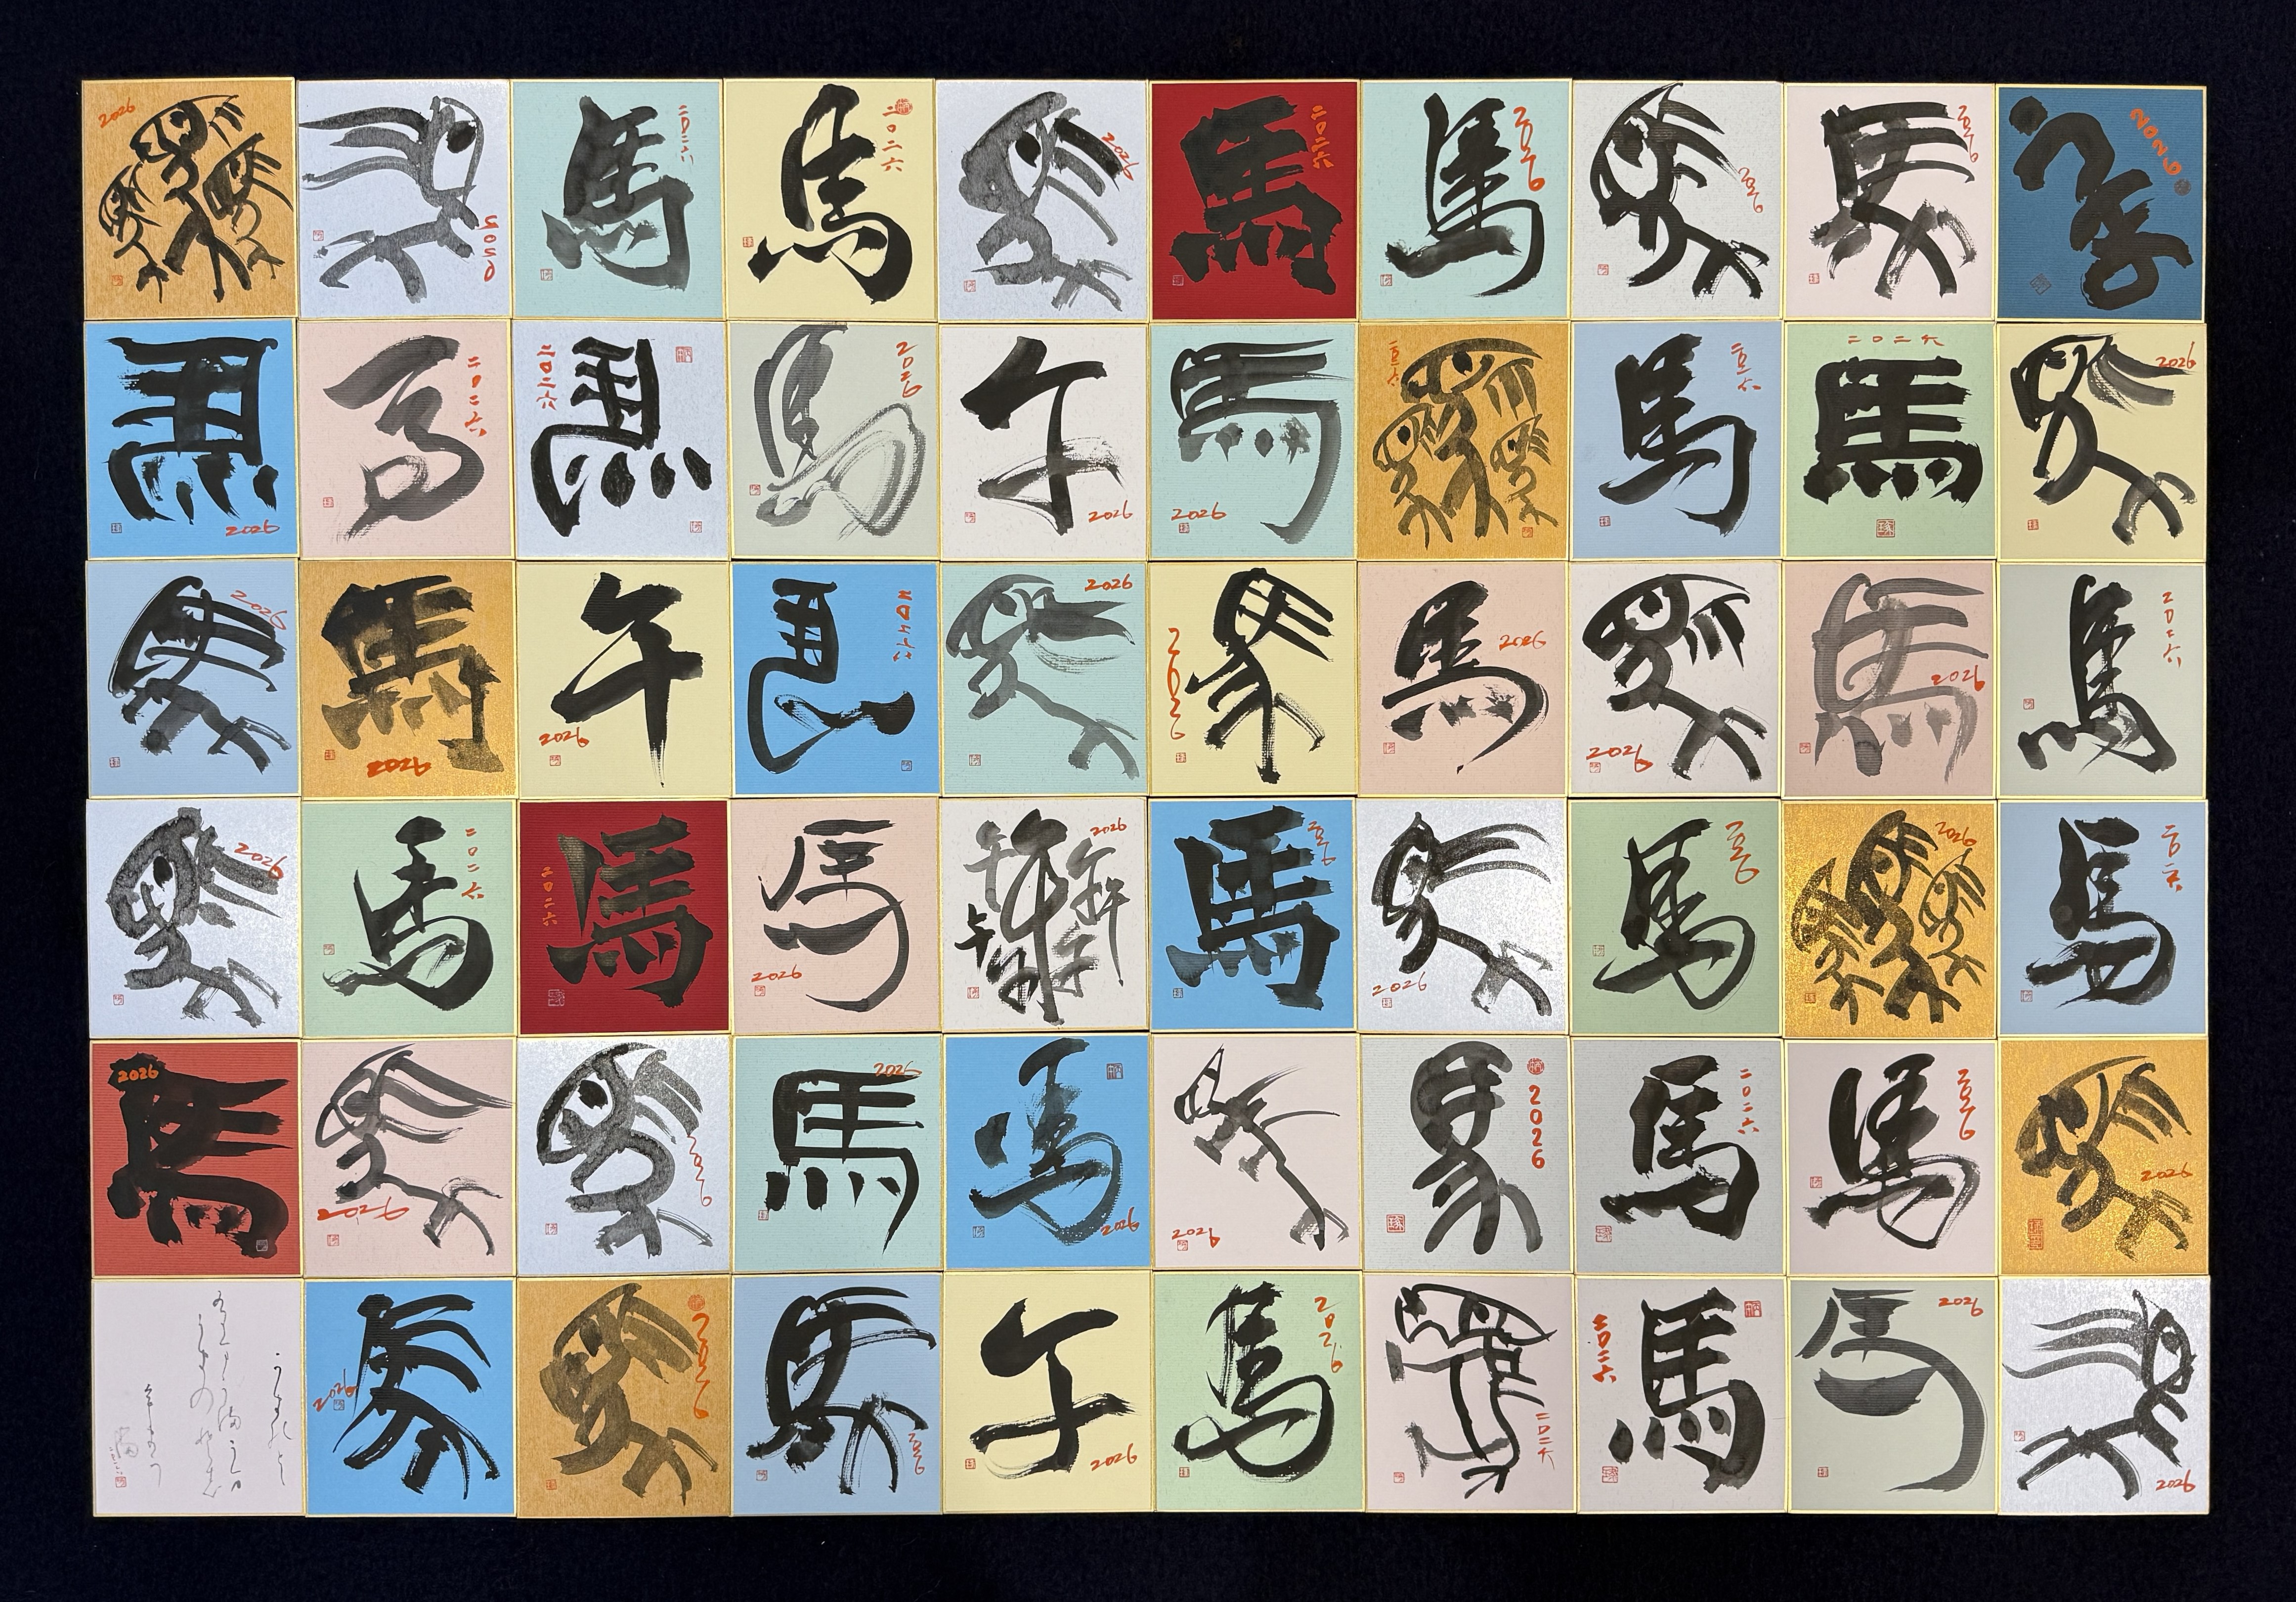 2026 馬馬馬
馬 2026
馬 二〇二六
馬 二〇二六
馬 2026
馬 二〇二六
馬 2026
馬 2026
馬 2026
2026
馬 2026
馬 二〇二六
馬 二〇二六
馬 2026
午 2026
馬 2026
馬馬馬 二〇二六
馬 二〇二六
二〇二六 馬
馬 2026
馬 2026
馬 2026
午 2026
馬 二〇二六
馬 2026
馬 2026
馬 2026
馬 2026
馬 2026
馬 二〇二六
馬 2026
馬 二〇二六
馬 二〇二六
馬 2026
午午午午午 2026
馬 2026
馬 2026
馬 2026
馬馬馬 2026
馬 二〇二六
2026 馬
馬 2026
馬 2026
馬 2026
馬 2026
馬 2026
馬 2026
馬 二〇二六
馬 2026
馬 2026
馬 2026
馬 2026
馬 2026
午 2026
馬 2026
馬 二〇二六
馬 二〇二六
馬 2026
馬 2026